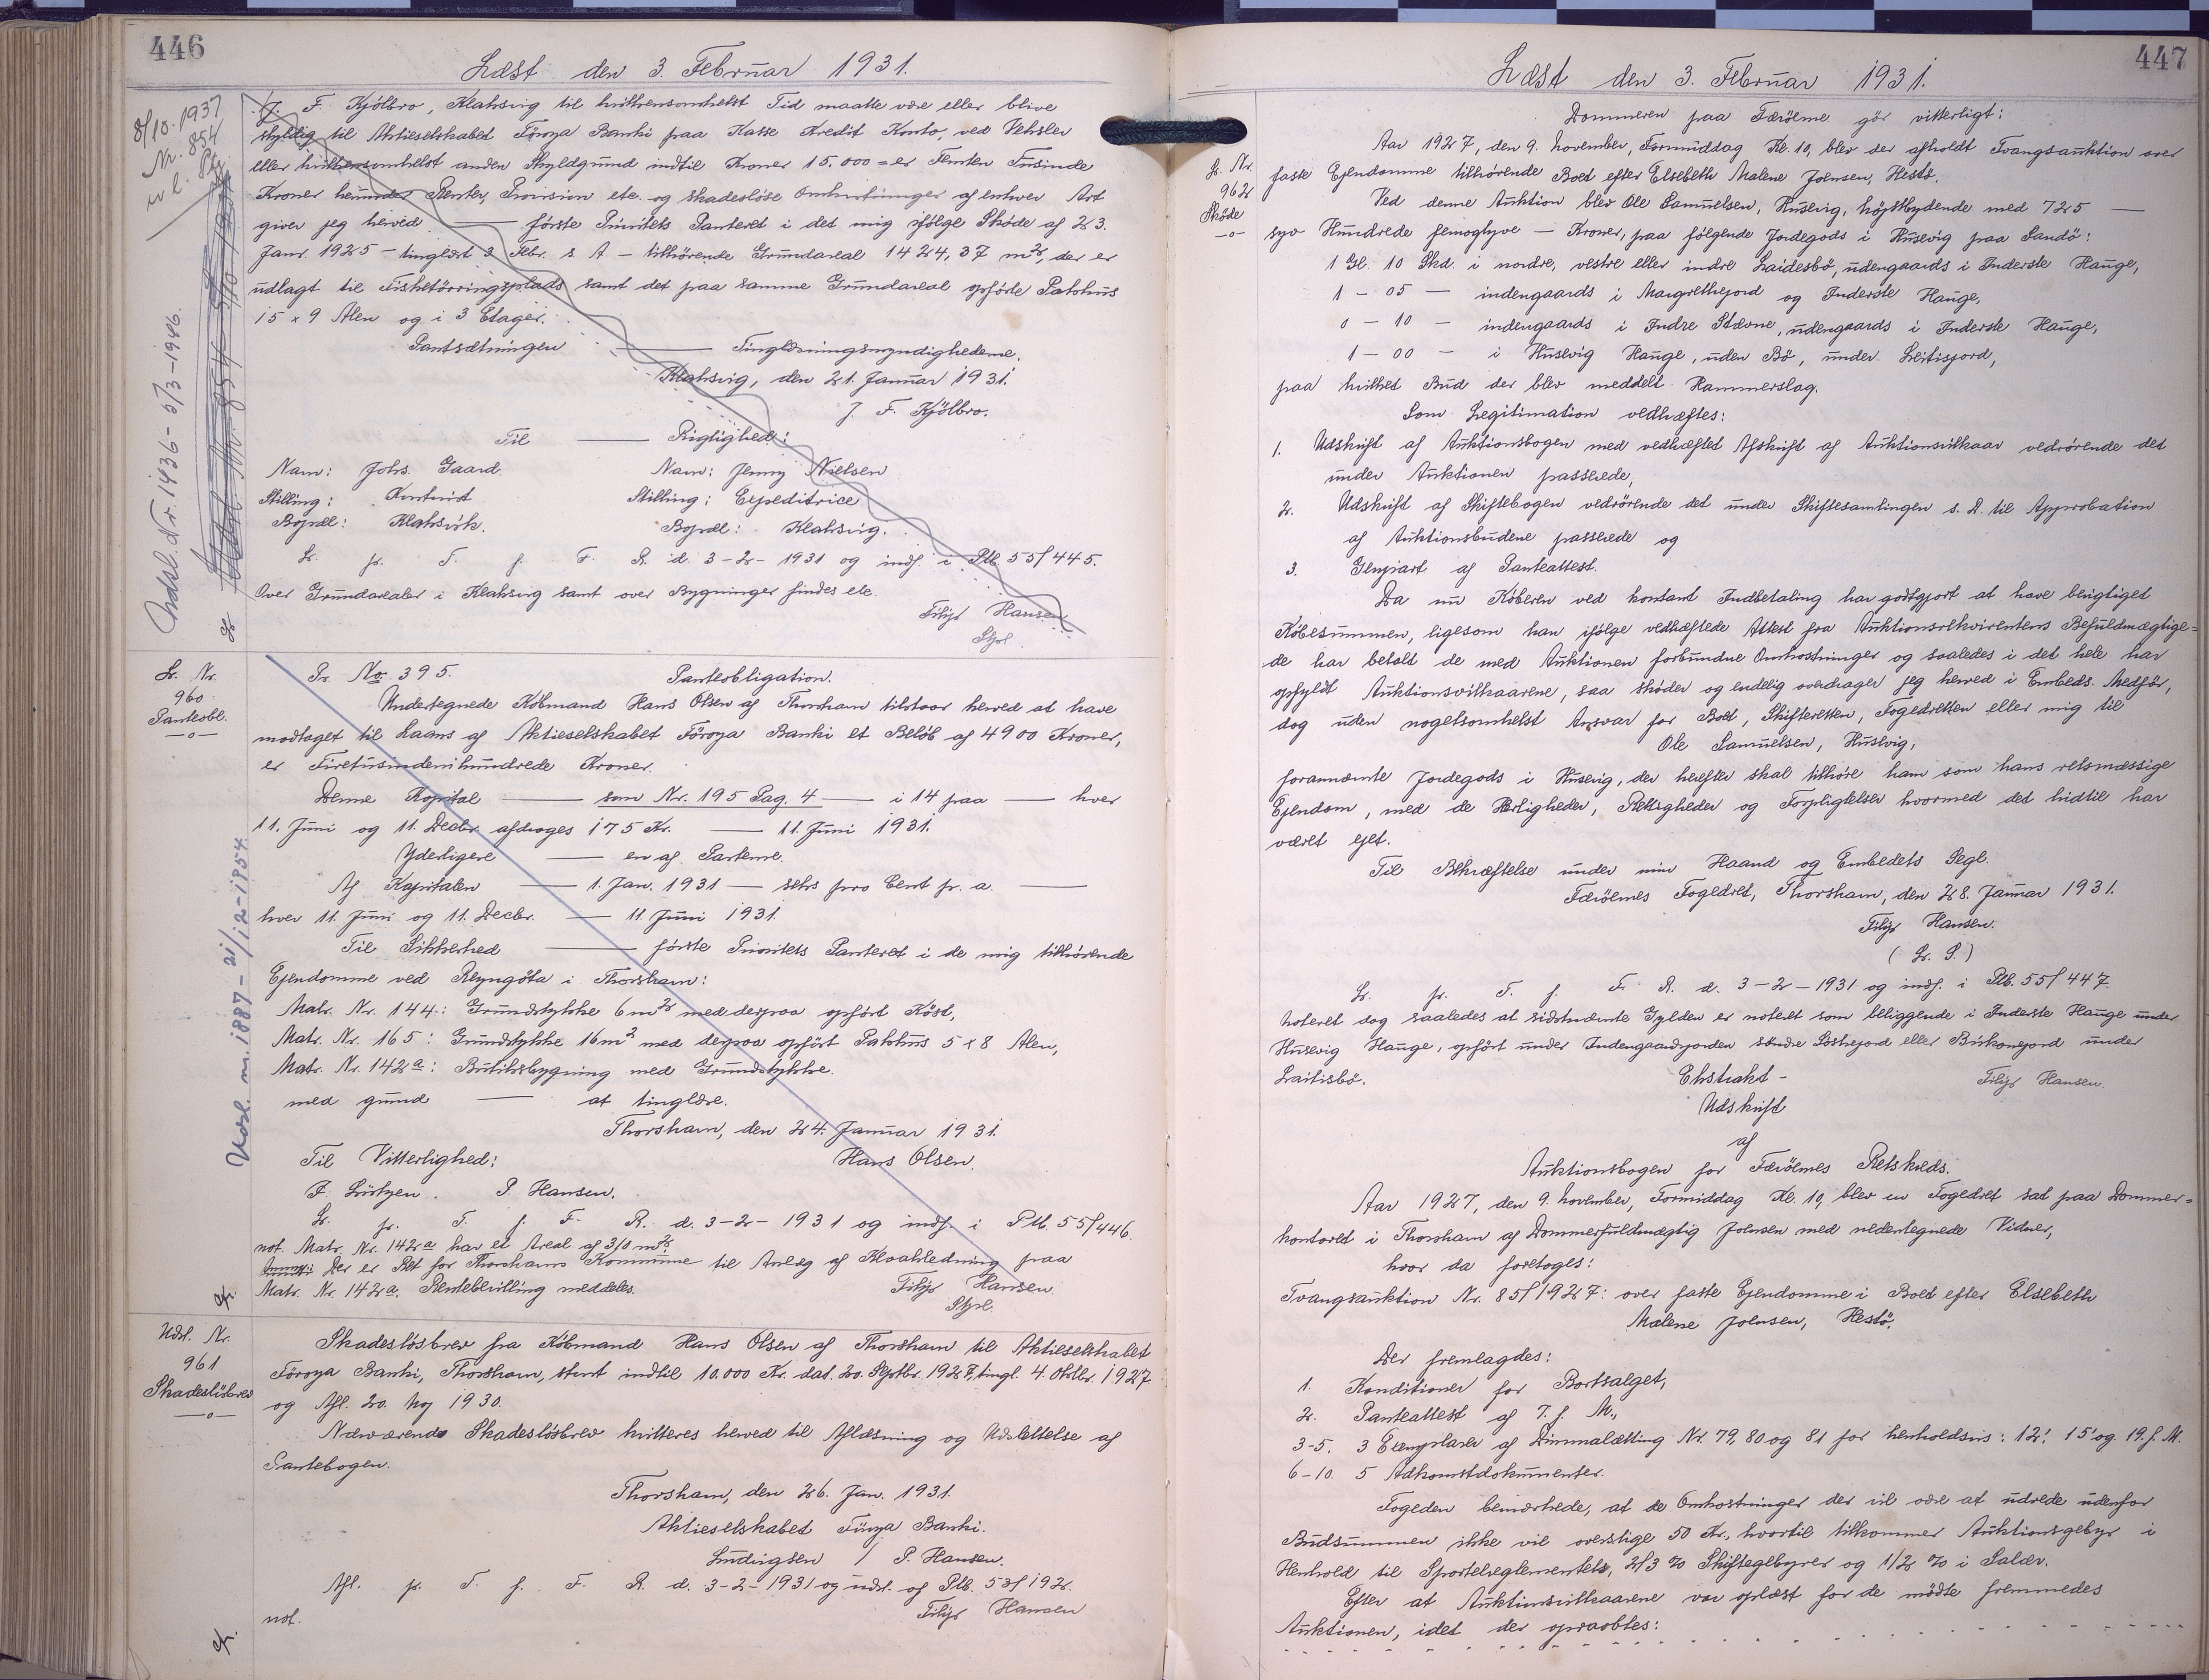 446
Læst den 3. Februar 1931.
8/10. 1937
Nr. 854
J. F. Kjölbro, Klaksvig til hvilkensomhelst Tid maatte være eller blive
skyldig til Aktieselskabet Föroya Banki paa Kasse Kredit Konto, ved Veksler
eller hvilkensomhelst anden Skyldgrund indtil Kroner 15.000 = er Femten Tusinde
Kroner herunder Renter, Provision etc. og skadesløse Omkostninger af enhver Art
giver jeg herved — første Prioritets Panteret i det mig ifølge Skøde af 23.
Janr. 1925 – tinglæst 3 Febr. s A – tilhørende Grundareal 1424,37 m², der er
udlagt til Fisketörringsplads samt det paa samme Grundareal opförte Pakhus
15 x 9 Alen og i 3 Etager.
Pantsætningen — Tinglæsningsmyndighederne.
Klaksvig, den 21. Januar 1931.
J. F. Kjölbro.
Til — Rigtighed:
Navn: Johs. Gaard. Navn: Jenny Nielsen
Stilling: Kontorist Stilling: Expeditrice
Bopæl: Klaksvik. Bopæl: Klaksvig.
L. pr. T. f. F. R. d. 3-2-1931 og indf. i Ptb. 55/445.
Over Grundarealer i Klaksvig samt over Bygninger findes etc.
Filip Hansen
Stpl.
Udsl. Nr. 1436 - 5/3-1946.
L. Nr.
960
Panteobl.
—o—
Pr. No. 395. Panteobligation.
Undertegnede Købmand Hans Olsen af Thorshavn tilstaar herved at have
modtaget til Laans af Aktieselskabet Föroya Banki et Beløb af 4900 Kroner,
er Firetusindenihundrede Kroner.
Denne Kapital — som Nr. 195 Pag. 4 — i 14 paa — hver
11. Juni og 11. Decbr. afdrages 175 Kr. — 11. Juni 1931.
Yderligere — en af Parterne.
Af Kapitalen — 1. Jan. 1931 — seks pro Cent pr. a. —
hver 11. Juni og 11. Decbr. — 11 Juni 1931.
Til Sikkerhed — første Prioritets Panteret i de mig tilhørende
Ejendomme ved Reyngöta i Thorshavn:
Matr. Nr. 144: Grundstykke 6 m² med derpaa opført Köst,
Matr. Nr. 165: Grundstykke 16 m² med derpaa opført Pakhus 5 x 8 Alen,
Matr. Nr. 142a: Butiksbygning med Grundstykke.
med grund — at tinglæse.
Thorshavn, den 24. Januar 1931.
Til Vitterlighed: Hans Olsen.
F. Lützen. P. Hansen.
L. pr. T. f. F. R. d. 3-2-1931 og indf. i Ptb. 55/446.
not. Matr. Nr. 142a har et Areal af 310 m².
Anmrk: Der er Ret for Thorshavns Kommune til Anlæg af Kloakledning paa
Matr. Nr. 142a. Rentebevilling meddeles. Filip Hansen.
Stpl.
Udsl. nr. 1887 - 21/12-1954.
Udsl. Nr.
961
Skadeslösbrev
—o—
Skadeslösbrev fra Købmand Hans Olsen af Thorshavn til Aktieselskabet
Föroya Banki, Thorshavn, stort indtil 10.000 Kr. dat. 20. Septbr. 1927, tingl. 4. Oktbr. 1927
og Afl. 20. Maj 1930.
Nærværende Skadesløsbrev kvitteres herved til Aflæsning og Udslettelse af
Pantebogen.
Thorshavn, den 26. Jan. 1931.
Aktieselskabet Föroya Banki.
Ludvigsen / P. Hansen.
Afl. pr. T. f. F. R. d. 3-2-1931 og udsl. af Ptb. 53/192.
not. Filip Hansen
447
Læst den 3. Februar 1931.
L. Nr.
962
Skøde
—o—
Dommeren paa Færöerne gör vitterligt:
Aar 1927, den 9. November, Formiddag Kl. 10, blev der afholdt Tvangsauktion over
faste Ejendomme tilhørende Boet efter Elsebeth Malene Joensen, Hestø.
Ved denne Auktion blev Ole Samuelsen, Husevig, højstbydende med 725 —
syv Hundrede femogtyve — Kroner, paa følgende Jordegods i Husevig paa Sandö:
1 Gl. 10 Skd. i nordre, vestre eller indre Laidesbø, udengaards i Inderste Hauge,
1 – 05 — indengaards i Margrethejord og Inderste Hauge,
0 – 10 — indengaards i Indre Stævne, udengaards i Inderste Hauge,
1 – 00 — i Husevig Hauge, uden Bø, under Leitisjord,
paa hvilket Bud der blev meddelt Hammerslag.
Som Legitimation vedhæftes:
1. Udskrift af Auktionsbogen med vedhæftet Afskrift af Auktionsvilkaar vedrørende det
under Auktionen passerede,
2. Udskrift af Skiftebogen vedrørende det under Skiftesamlingen s. D. til Approbation
af Auktionsbudene passerede og
3. Genpart af Panteattest.
Da nu Køberen ved kontant Indbetaling har godtgjort at have berigtiget
Købesummen, ligesom han ifølge vedhæftede Attest fra Auktionsrekvirentens Befuldmægtige-
de har betalt de med Auktionen forbundne Omkostninger og saaledes i det hele har
opfyldt Auktionsvilkaarene, saa skøder og endelig overdrager jeg herved i Embeds Medfør,
dog uden nogetsomhelst Ansvar for Boet, Skifteretten, Fogedretten eller mig til
Ole Samuelsen, Husevig,
forannævnte Jordegods i Husevig, der herefter skal tilhøre ham som hans retsmæssige
Ejendom, med de Herligheder, Rettigheder og Forpligtelser hvormed det hidtil har
været ejet.
Til Bekræftelse under min Haand og Embedets Segl.
Færöernes Fogedret, Thorshavn, den 28. Januar 1931.
Filip Hansen.
(L. S.)
L. pr. T. f. F. R. d. 3-2-1931 og indf. i Ptb. 55/447.
Noteret dog saaledes at sidstnævnte Gylden er noteret som beliggende i Inderste Hauge under
Husevig Hauge, opført under Indengaardsjorden søndre Loskejord eller Birkonejord under
Laitisbø. Ekstrakt - Filip Hansen.
Udskrift
af
Auktionsbogen for Færöernes Retskreds.
Aar 1927, den 9. November, Formiddag Kl. 10, blev en Fogedret sat paa Dommer=
kontoret i Thorshavn af Dommerfuldmægtig Joensen med nedentegnede Vidner,
hvor da foretoges:
Tvangsauktion Nr. 85/1927: over faste Ejendomme i Boet efter Elsebeth
Malene Joensen, Hestö.
Der fremlagdes:
1. Konditioner for Bortsalget,
2. Panteattest af 7. f. M.,
3-5. 3 Exemplarer af Dimmalætting Nr. 79, 80 og 81 for henholdsvis: 12', 15' og 19. f. M.
6-10. 5 Adkomstdokumenter.
Fogeden bemærkede, at de Omkostninger der vil være at udrede udenfor
Budsummen ikke vil overstige 50 Kr., hvortil tilkommer Auktionsgebyr i
Henhold til Sportelreglementet, 2/3 % Skiftegebyrer og 1/2 % i Salær.
Efter at Auktionsvilkaarene var oplæst for de mødte fremmedes
Auktionen, idet der opraabtes: